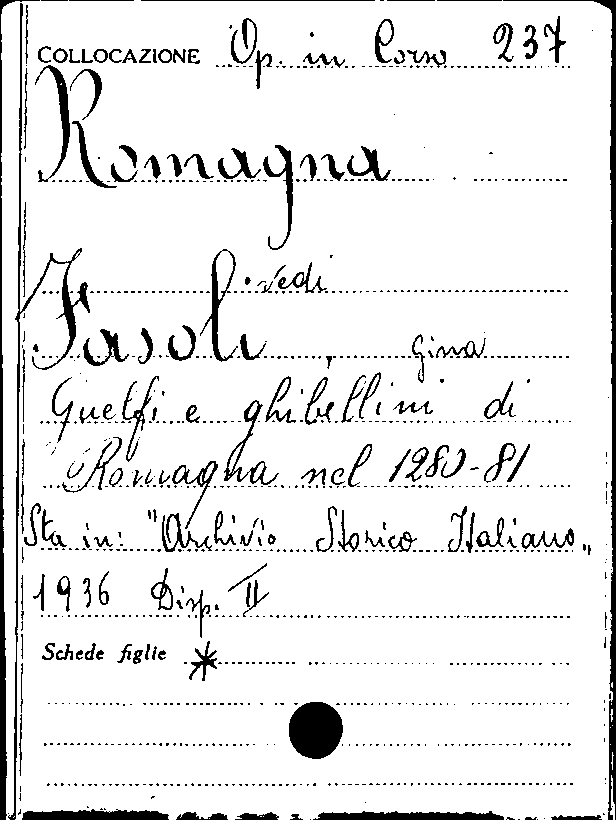 COLLOCAZIONE Op. in Corso 237
Romagna
vedi
Fasoli, Gina
Guelfi e ghibellini di
Romagna nel 1280-81
Sta in: "Archivio Storico Italiano„
1936 Disp. II
Schede figlie *